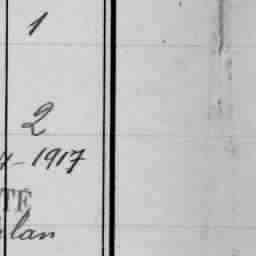 1
2
-1917
TE
lan